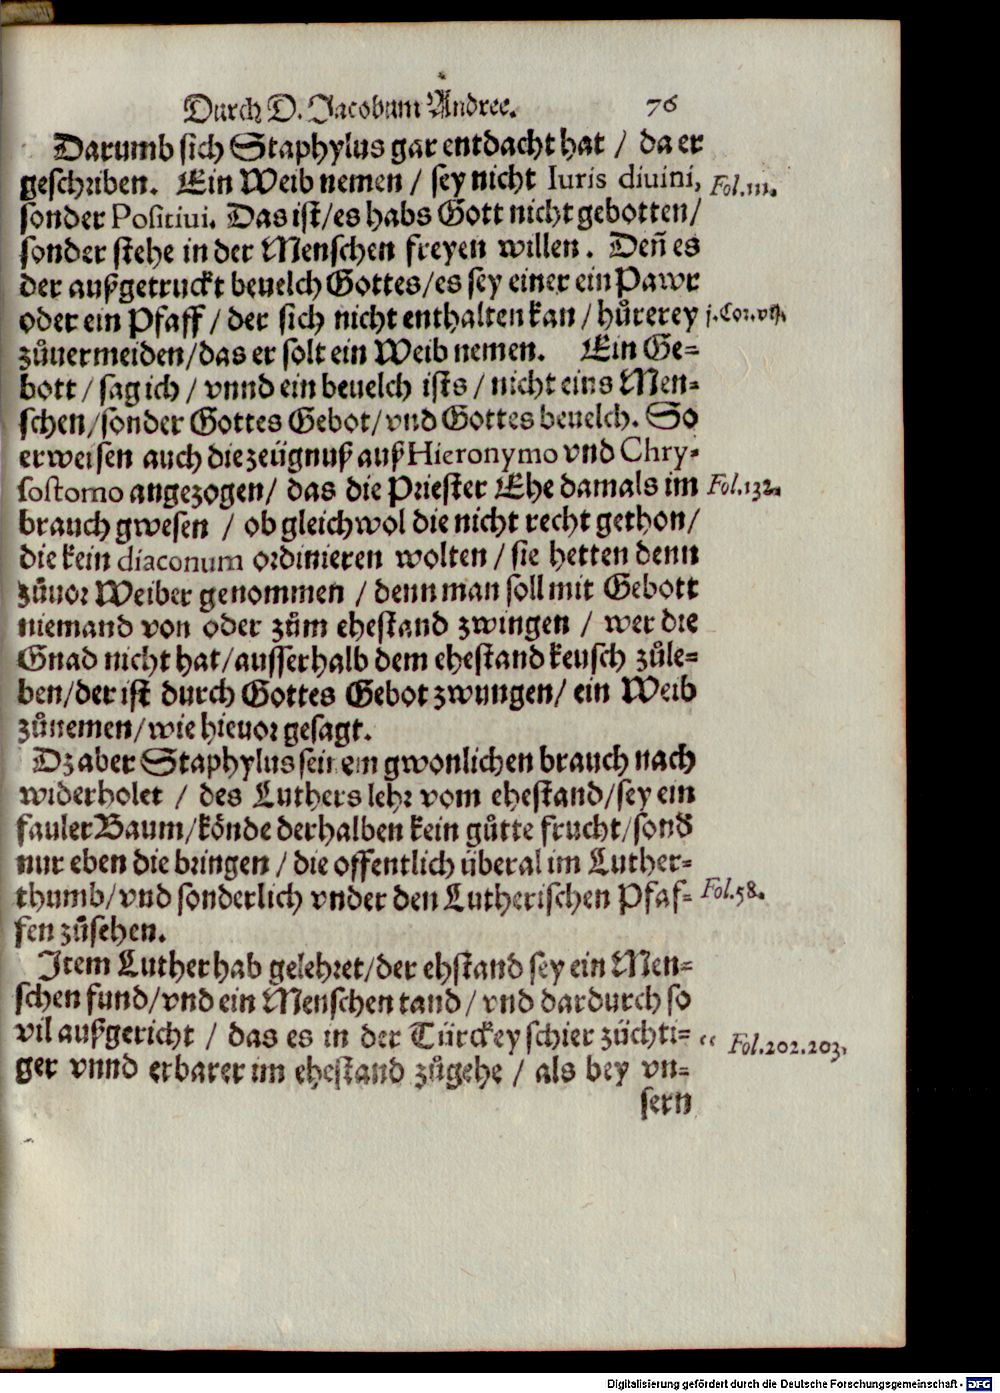 Durch D. Jacobum Andree. 76
Darumb sich Staphylus gar entdacht hat / da er
geschriben. Ein Weib nemen / sey nicht Iuris diuini, Fol.111.
sonder Positiui. Das ist/es habs Gott nicht gebotten/
sonder stehe in der Menschen freyen willen. Deñ es
der außgetruckt beuelch Gottes/es sey einer ein Pawr
oder ein Pfaff / der sich nicht enthalten kan / hůrerey j.Cor.vij.
zůuermeiden/das er solt ein Weib nemen. Ein Ge-
bott / sag ich / vnnd ein beuelch ists / nicht eins Men-
schen/sonder Gottes Gebot/vnd Gottes beuelch. So
erweisen auch die zeügnuß auß Hieronymo vnd Chry-
sostomo angezogen/ das die Priester Ehe damals im Fol.132.
brauch gwesen / ob gleichwol die nicht recht gethon/
die kein diaconum ordinieren wolten / sie hetten denn
zůuor Weiber genommen / denn man soll mit Gebott
niemand von oder zům ehestand zwingen / wer die
Gnad nicht hat/ausserhalb dem ehestand keusch zůle-
ben/der ist durch Gottes Gebot zwungen/ ein Weib
zůnemen/wie hieuor gesagt.
Dz aber Staphylus seinem gwonlichen brauch nach
widerholet / des Luthers lehr vom ehestand/sey ein
fauler Baum/könde derhalben kein gůtte frucht/sond
nur eben die bringen / die offentlich überal im Luther-
thumb/vnd sonderlich vnder den Lutherischen Pfaf- Fol.58.
fen zůsehen.
Item Luther hab gelehret/der ehstand sey ein Men-
schen fund/vnd ein Menschen tand / vnd dardurch so
vil außgericht / das es in der Türckey schier züchti- Fol.202.203.
ger vnnd erbarer im ehestand zůgehe / als bey vn-
sern
Digitalisierung gefördert durch die Deutsche Forschungsgemeinschaft - DFG